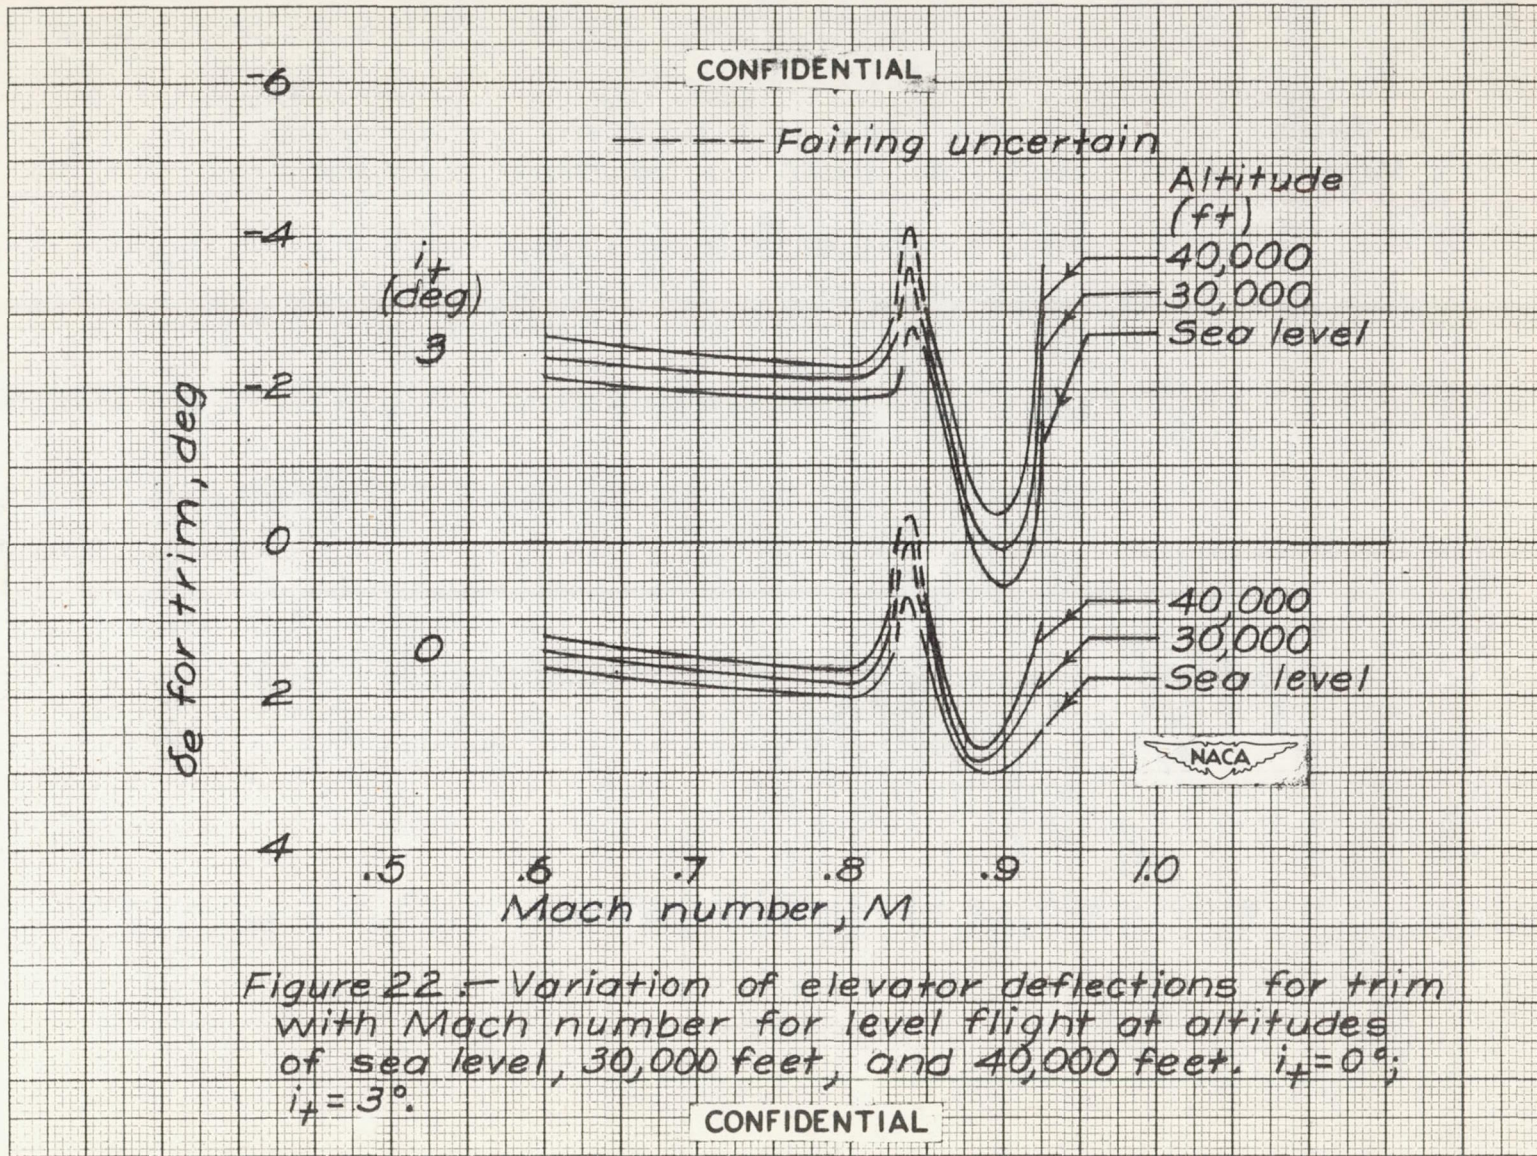 CONFIDENTIAL
Fairing uncertain
-6
-4
-2
0
2
4
δe for trim, deg
it
(deg)
3
0
Altitude
(ft)
40,000
30,000
Sea level
40,000
30,000
Sea level
NACA
.5 .6 .7 .8 .9 1.0
Mach number, M
Figure 22.- Variation of elevator deflections for trim
with Mach number for level flight at altitudes
of sea level, 30,000 feet, and 40,000 feet. it=0°;
it=3°.
CONFIDENTIAL